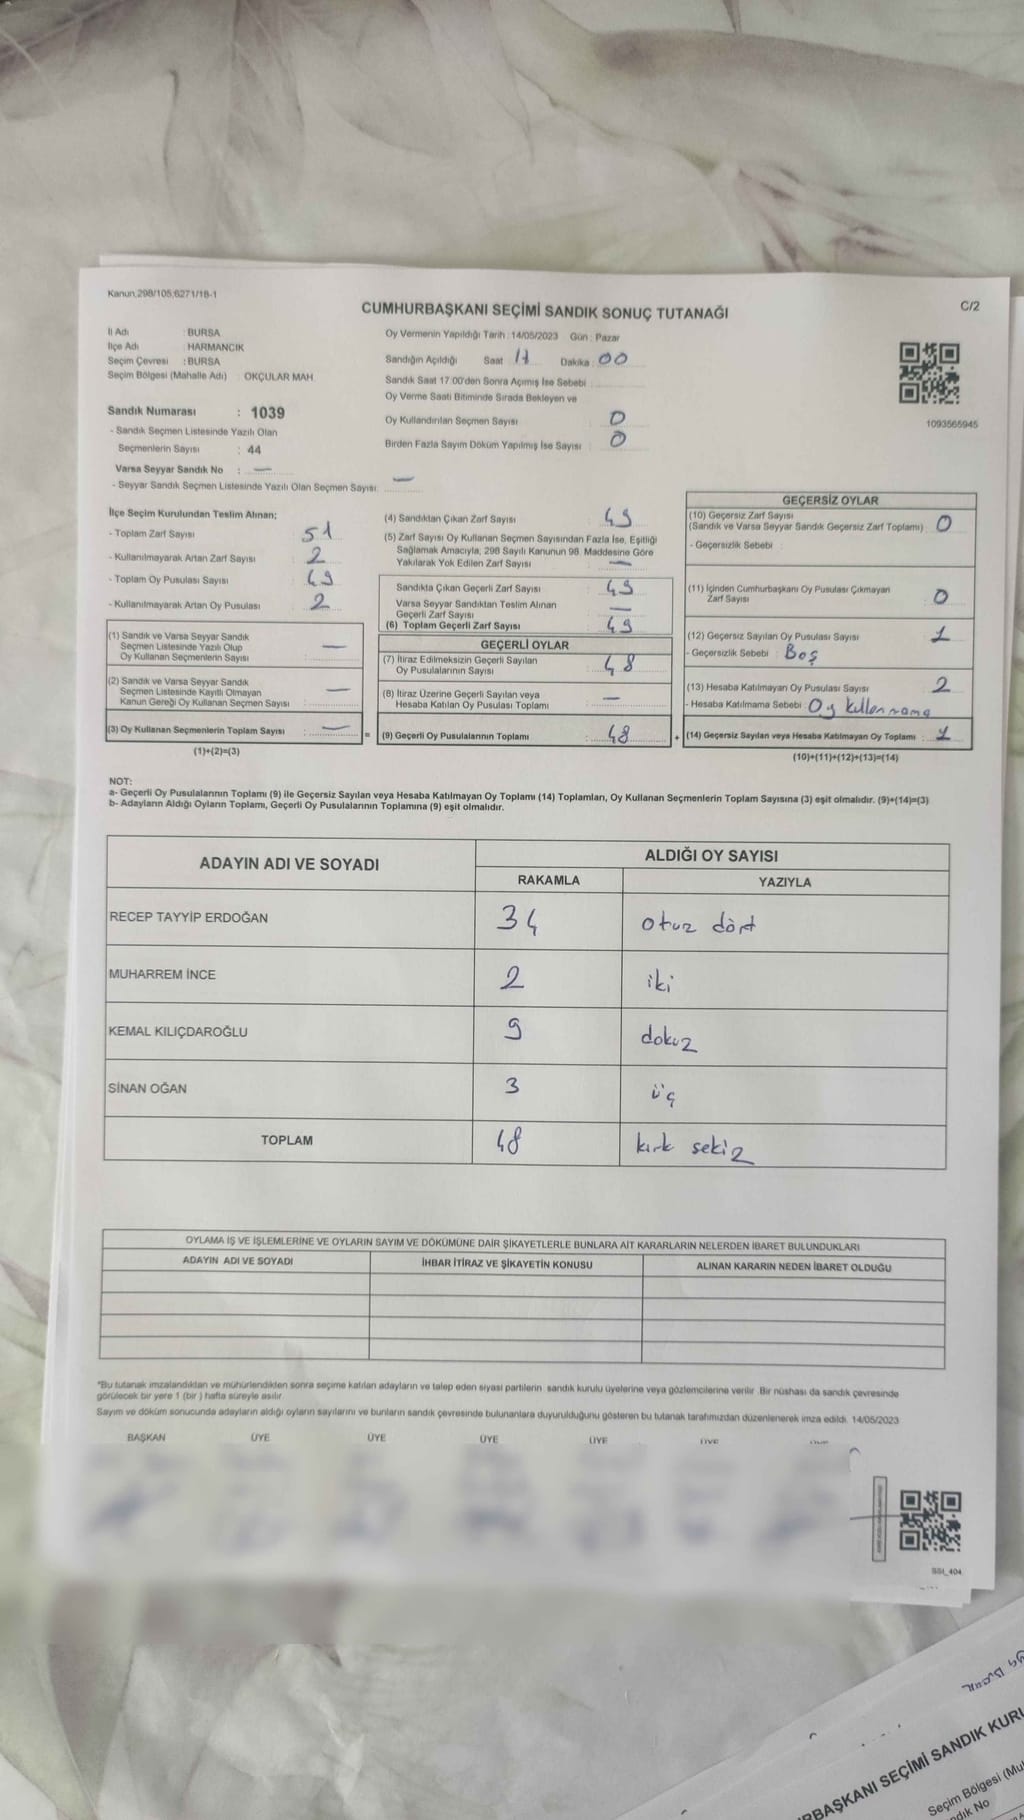 Kanun.298/105;6271/18-1
CUMHURBAŞKANI SEÇİMİ SANDIK SONUÇ TUTANAĞI
C/2
İl Adı : BURSA
İlçe Adı : HARMANCIK
Seçim Çevresi : BURSA
Seçim Bölgesi (Mahalle Adı) : OKÇULAR MAH.
Oy Vermenin Yapıldığı Tarih : 14/05/2023 Gün : Pazar
Sandığın Açıldığı Saat 17 Dakika : 00
Sandık Saat 17:00'den Sonra Açımış İse Sebebi
Oy Verme Saati Bitiminde Sırada Bekleyen ve
Oy Kullandırılan Seçmen Sayısı : 0
Birden Fazla Sayım Döküm Yapılmış İse Sayısı : 0
1093565945
Sandık Numarası : 1039
- Sandık Seçmen Listesinde Yazılı Olan
Seçmenlerin Sayısı : 44
Varsa Seyyar Sandık No : —
- Seyyar Sandık Seçmen Listesinde Yazılı Olan Seçmen Sayısı: —
İlçe Seçim Kurulundan Teslim Alınan;
- Toplam Zarf Sayısı : 51
- Kullanılmayarak Artan Zarf Sayısı : 2
- Toplam Oy Pusulası Sayısı : 49
- Kullanılmayarak Artan Oy Pusulası : 2
(1) Sandık ve Varsa Seyyar Sandık
Seçmen Listesinde Yazılı Olup
Oy Kullanan Seçmenlerin Sayısı : —
(2) Sandık ve Varsa Seyyar Sandık
Seçmen Listesinde Kayıtlı Olmayan
Kanun Gereği Oy Kullanan Seçmen Sayısı : —
(3) Oy Kullanan Seçmenlerin Toplam Sayısı : —
(1)+(2)=(3)
=
(4) Sandıktan Çıkan Zarf Sayısı : 49
(5) Zarf Sayısı Oy Kullanan Seçmen Sayısından Fazla İse, Eşitliği
Sağlamak Amacıyla, 298 Sayılı Kanunun 98. Maddesine Göre
Yakılarak Yok Edilen Zarf Sayısı : —
Sandıkta Çıkan Geçerli Zarf Sayısı : 49
Varsa Seyyar Sandıktan Teslim Alınan
Geçerli Zarf Sayısı : —
(6) Toplam Geçerli Zarf Sayısı : 49
GEÇERLİ OYLAR
(7) İtiraz Edilmeksizin Geçerli Sayılan
Oy Pusulalarının Sayısı : 48
(8) İtiraz Üzerine Geçerli Sayılan veya
Hesaba Katılan Oy Pusulası Toplamı : —
(9) Geçerli Oy Pusulalarının Toplamı : 48
+
GEÇERSİZ OYLAR
(10) Geçersiz Zarf Sayısı
(Sandık ve Varsa Seyyar Sandık Geçersiz Zarf Toplamı) : 0
- Geçersizlik Sebebi :
(11) İçinden Cumhurbaşkanı Oy Pusulası Çıkmayan
Zarf Sayısı : 0
(12) Geçersiz Sayılan Oy Pusulası Sayısı : 1
- Geçersizlik Sebebi : Boş
(13) Hesaba Katılmayan Oy Pusulası Sayısı : 2
- Hesaba Katılmama Sebebi : Oy kullanmama
(14) Geçersiz Sayılan veya Hesaba Katılmayan Oy Toplamı : 1
(10)+(11)+(12)+(13)=(14)
NOT:
a- Geçerli Oy Pusulalarının Toplamı (9) ile Geçersiz Sayılan veya Hesaba Katılmayan Oy Toplamı (14) Toplamları, Oy Kullanan Seçmenlerin Toplam Sayısına (3) eşit olmalıdır. (9)+(14)=(3)
b- Adayların Aldığı Oyların Toplamı, Geçerli Oy Pusulalarının Toplamına (9) eşit olmalıdır.
ADAYIN ADI VE SOYADI
ALDIĞI OY SAYISI
RAKAMLA YAZIYLA
RECEP TAYYİP ERDOĞAN 34 otuz dört
MUHARREM İNCE 2 iki
KEMAL KILIÇDAROĞLU 9 dokuz
SİNAN OĞAN 3 üç
TOPLAM 48 kırk sekiz
OYLAMA İŞ VE İŞLEMLERİNE VE OYLARIN SAYIM VE DÖKÜMÜNE DAİR ŞİKAYETLERLE BUNLARA AİT KARARLARIN NELERDEN İBARET BULUNDUKLARI
ADAYIN ADI VE SOYADI İHBAR İTİRAZ VE ŞİKAYETİN KONUSU ALINAN KARARIN NEDEN İBARET OLDUĞU
*Bu tutanak imzalandıktan ve mühürlendikten sonra seçime katılan adayların ve talep eden siyasi partilerin sandık kurulu üyelerine veya gözlemcilerine verilir .Bir nüshası da sandık çevresinde
görülecek bir yere 1 (bir ) hafta süreyle asılır.
Sayım ve döküm sonucunda adayların aldığı oyların sayılarını ve bunların sandık çevresinde bulunanlara duyurulduğunu gösteren bu tutanak tarafımızdan düzenlenerek imza edildi. 14/05/2023
BAŞKAN ÜYE ÜYE ÜYE ÜYE ÜYE
SSI_404
RBAŞKANI SEÇİMİ SANDIK KURU
Seçim Bölgesi (Mu